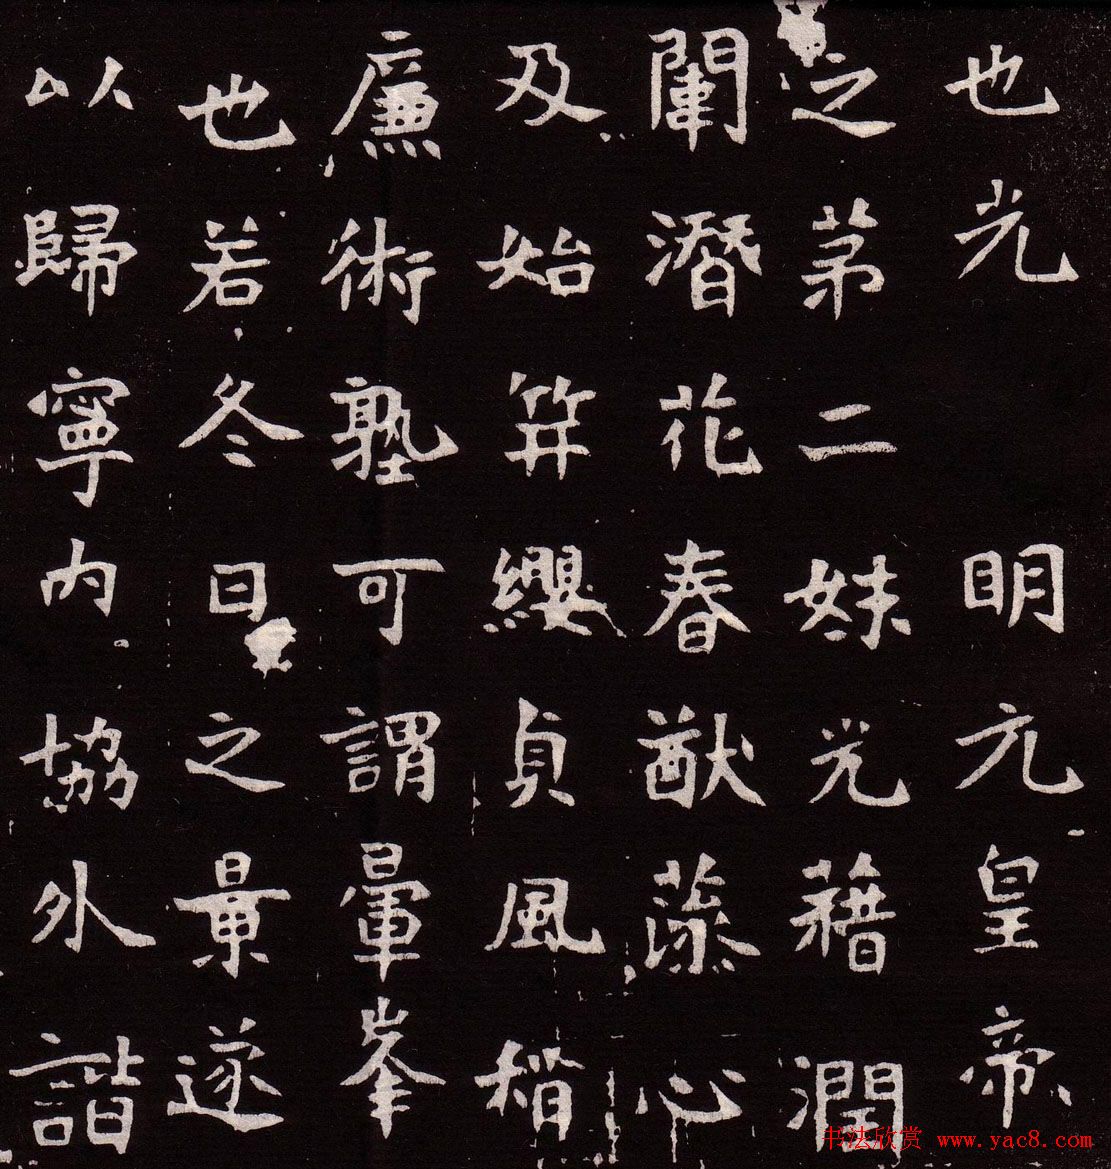 也光 明元皇帝
之苐二妹光藉潤
闈潛花春猷心
及始笄纓貞風楷
廉術塾可謂暈峯
也若冬日之景遂
以歸寧内協外諧
书法欣赏 www.yac8.com